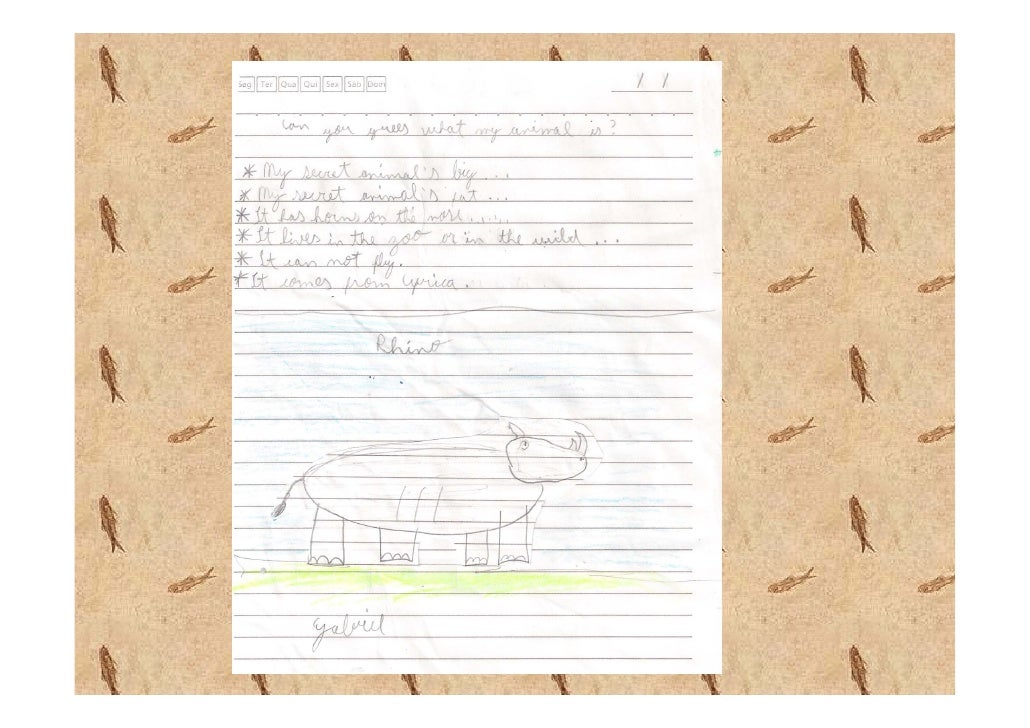 Seg Ter Qua Qui Sex Sáb Dom / /
Can you guees what my animal is?
* My secret animal's big...
* My secret animal's fat...
* It has horns on the nose.....
* It lives in the zoo or in the wild...
* It can not fly.
* It comes from Africa.
Rhino
Gabriel